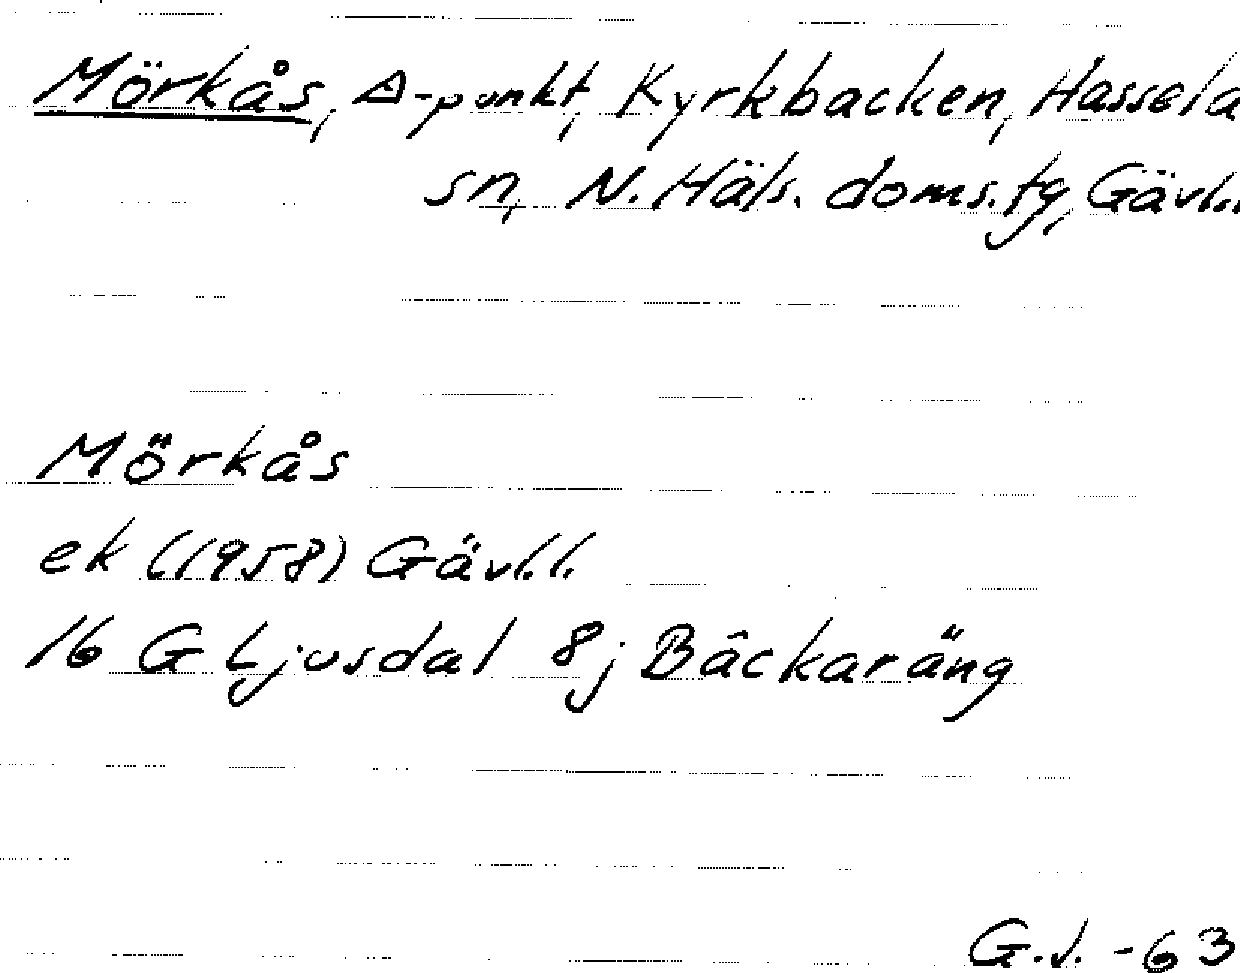 Mörkås, Δ-punkt, Kyrkbacken, Hassela
sn, N. Häls. doms.tg, Gävl.l
Mörkås
ek (1958) Gävl.l.
16 G Ljusdal 8j Bäckaräng
G.J. -63